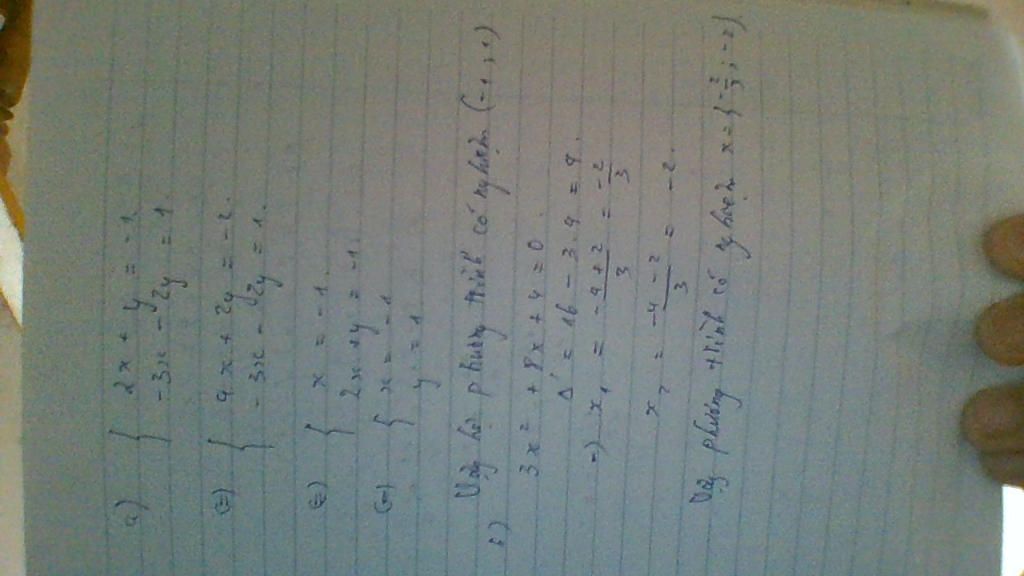 a) { 2x + y = -1
-3x - 2y = 1
(=) { 4x + 2y = -2.
-3x - 2y = 1.
(=) { x = -1.
2x + y = -1.
(=) { x = -1
y = 1
Vậy hệ phương trình có nghiệm (-1; 1)
b) 3x² + 8x + 4 = 0.
Δ' = 16 - 3.4 = 4.
=) x₁ = -4 + 2 / 3 = -2 / 3
x₂ = -4 - 2 / 3 = -2.
Vậy phương trình có nghiệm x = { -2/3; -2 }